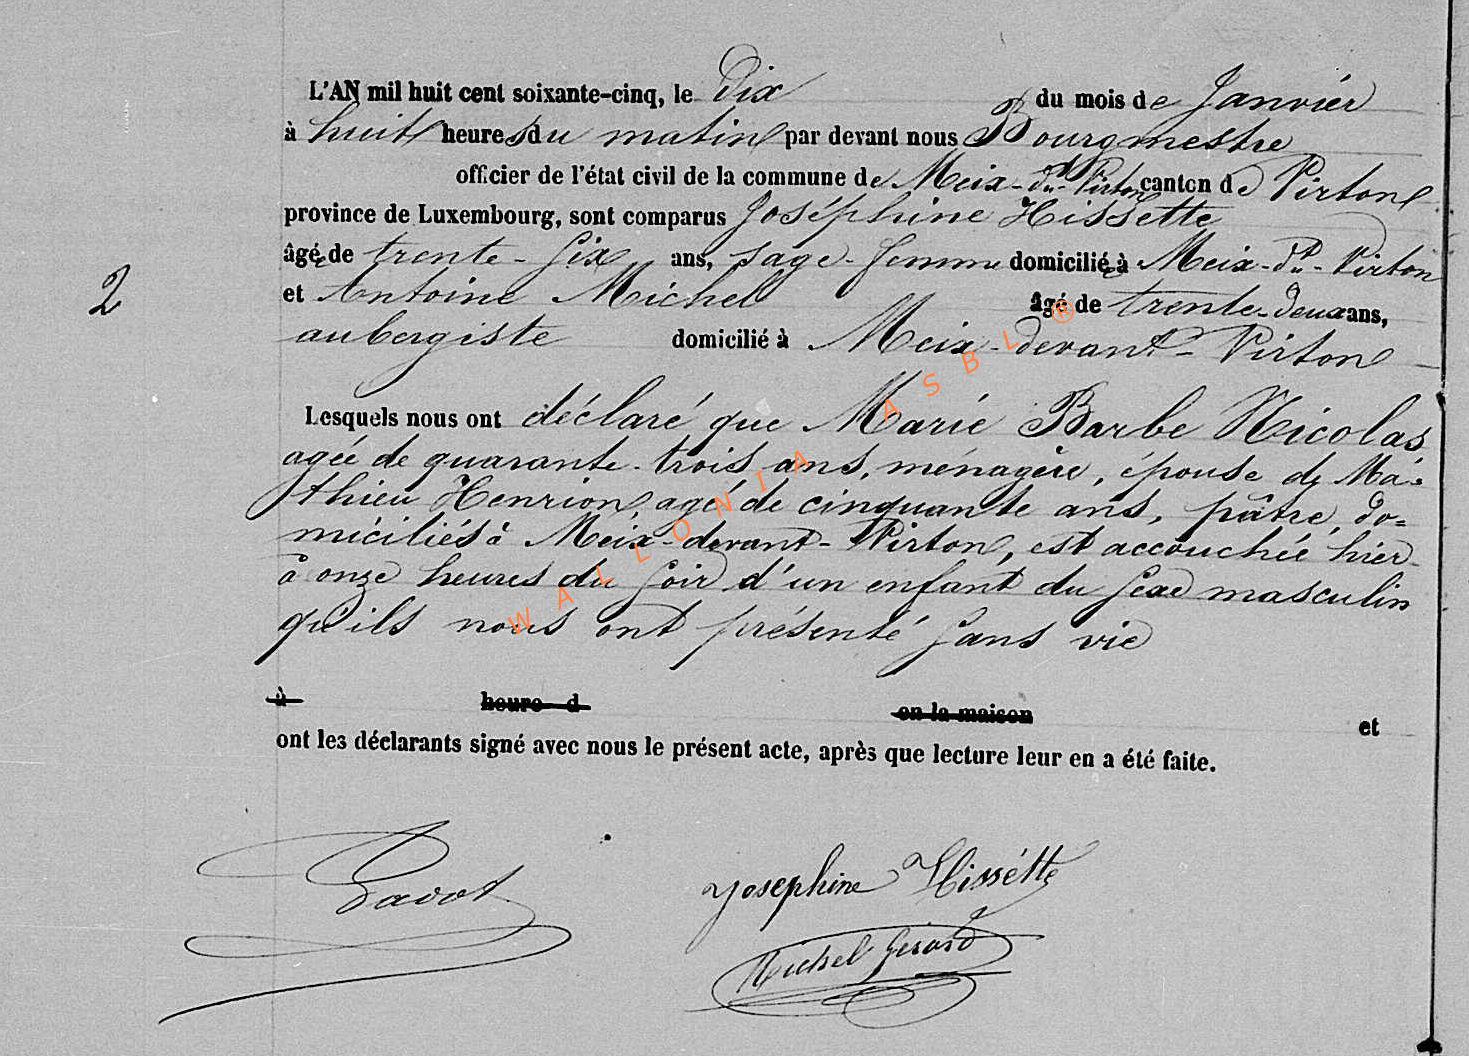 L'AN mil huit cent soixante-cinq, le Dix du mois de Janviér
à huit heures du matin par devant nous Bourgmestre
officier de l'état civil de la commune de Meix-dt-Virton canton de Virton
province de Luxembourg, sont comparus Joséphine Hissette
âgée de trente-six ans, sage-femme domiciliée à Meix-dt-Virton
et Antoine Michel âgé de trente-deux ans,
aubergiste domicilié à Meix-devant-Virton
Lesquels nous ont déclaré que Marie Barbe Nicolas
agée de quarante-trois ans, ménagère, épouse de Ma=
thieu Henrion, agé de cinquante ans, pâtre, do=
miciliés à Meix-devant-Virton, est accouchée hier
à onze heures du soir d'un enfant du sexe masculin
qu'ils nous ont présenté sans vie
2
à heure d en la maison et
ont les déclarants signé avec nous le présent acte, après que lecture leur en a été faite.
Josephine Hissétte
Michel Gerard
WALLONIA ASBL ®